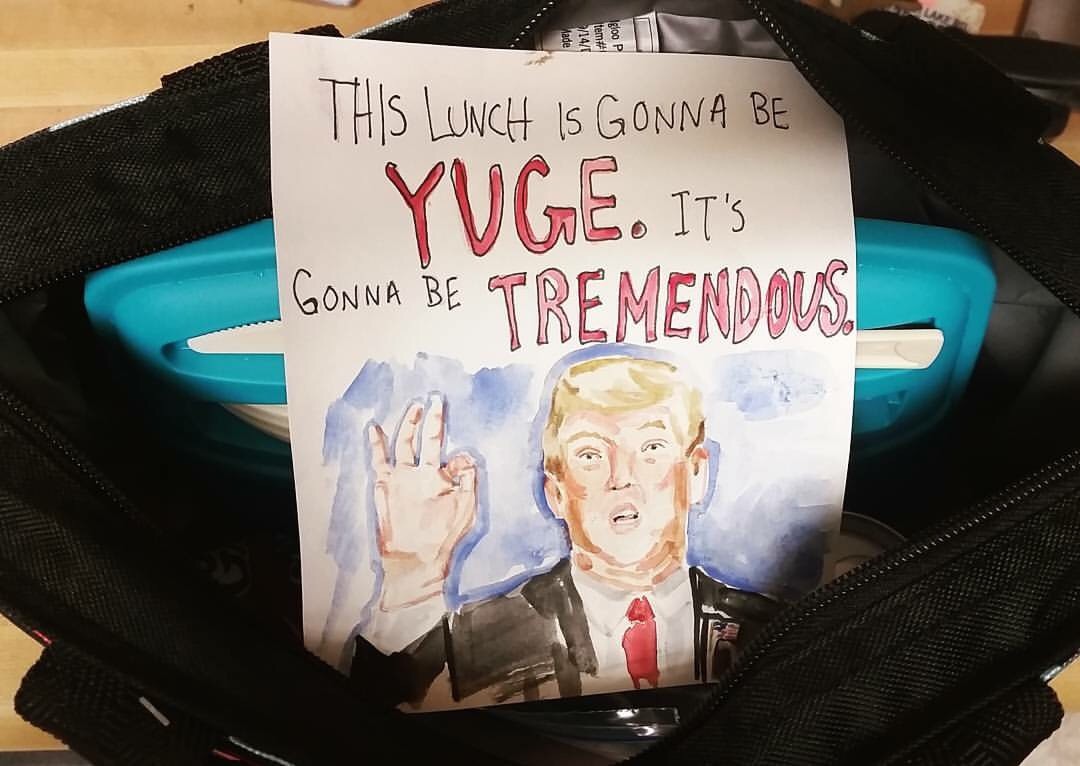 THIS LUNCH IS GONNA BE
YUGE. IT'S
GONNA BE TREMENDOUS.